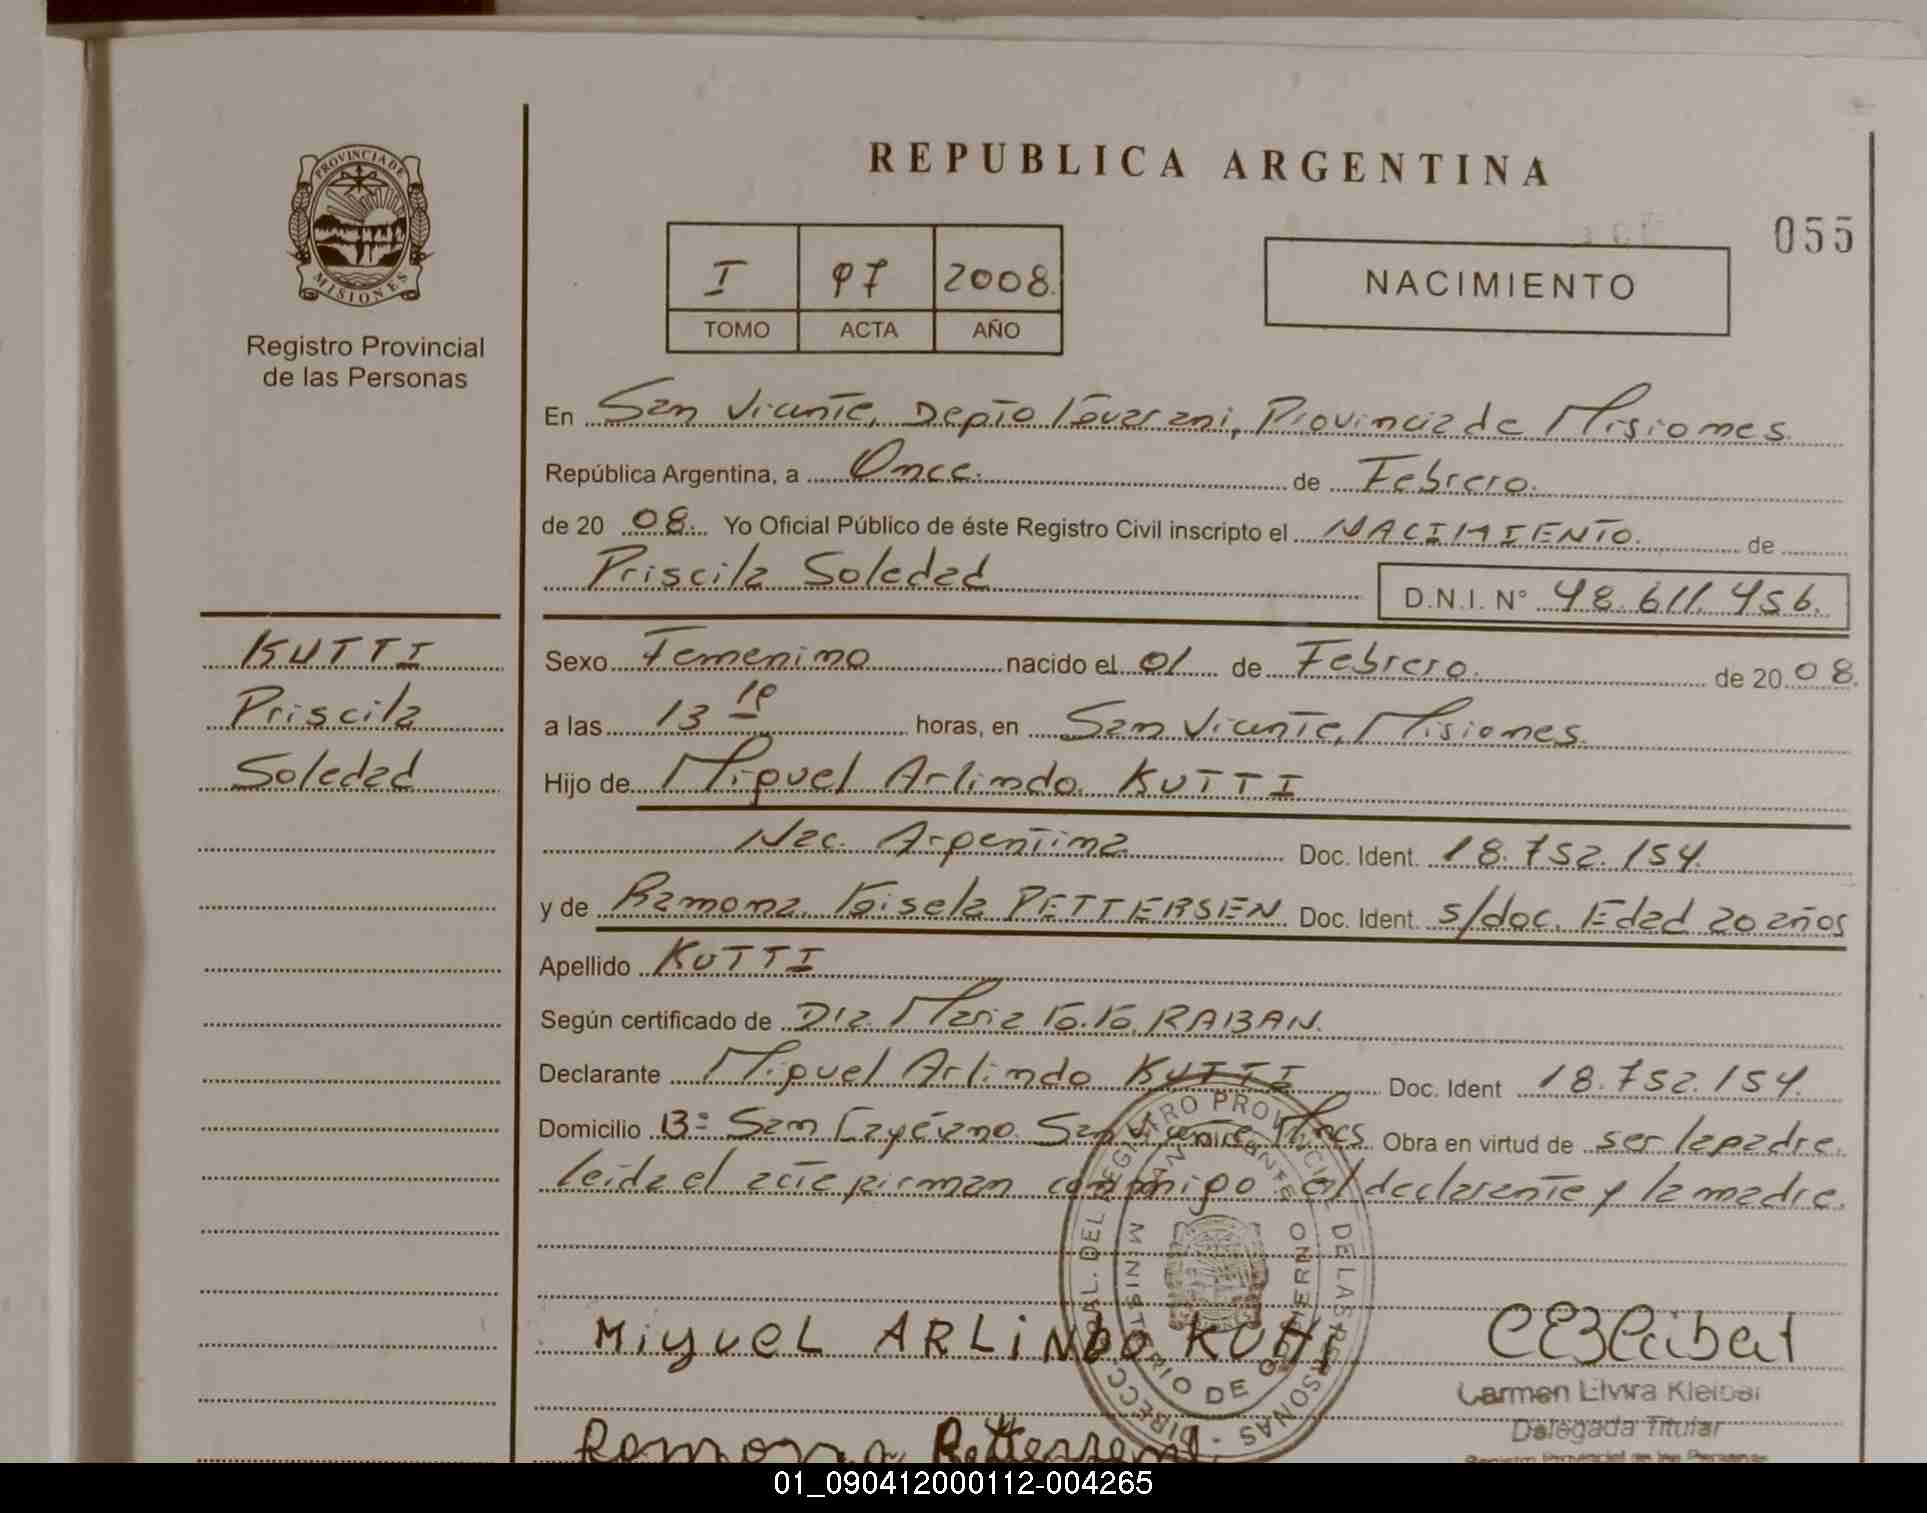 REPUBLICA ARGENTINA
055
PROVINCIA DE
MISIONES
Registro Provincial
de las Personas
I 97 2008.
TOMO ACTA AÑO
NACIMIENTO
En San Vicente, Depto Guarani, Provincia de Misiones
República Argentina, a Once. de Febrero.
de 20 08. Yo Oficial Público de éste Registro Civil inscripto el NACIMIENTO. de
Priscila Soledad D.N.I. N° 48.611.456.
KUTTI
Priscila
Soledad
Sexo Femenino nacido el 01 de Febrero. de 20 08.
a las 13 10 horas, en San Vicente, Misiones.
Hijo de Miguel Arlindo KUTTI
Nac. Argentina Doc. Ident. 18.752.154.
y de Ramona Gisela PETTERSEN Doc. Ident. s/doc. Edad 20 años
Apellido KUTTI
Según certificado de Dra. Maria G.G. RABAN.
Declarante Miguel Arlindo KUTTI Doc. Ident 18.752.154.
Domicilio B= San Cayetano San Vicente Mnes. Obra en virtud de ser la padre.
leida el acta firman conmigo el declarante y la madre.
MINISTERIO DE GOBIERNO
MiguEL ARLiNDO KUtti
Carmen Elvira Kleiber
Delegada Titular
Registro Provincial de las Personas
Ramona Pettersen
01_090412000112-004265